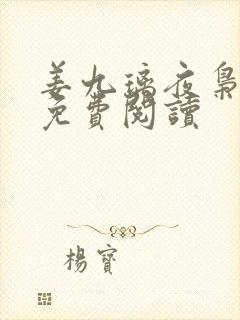 姜九璃夜梟
免費閱讀
楊寶